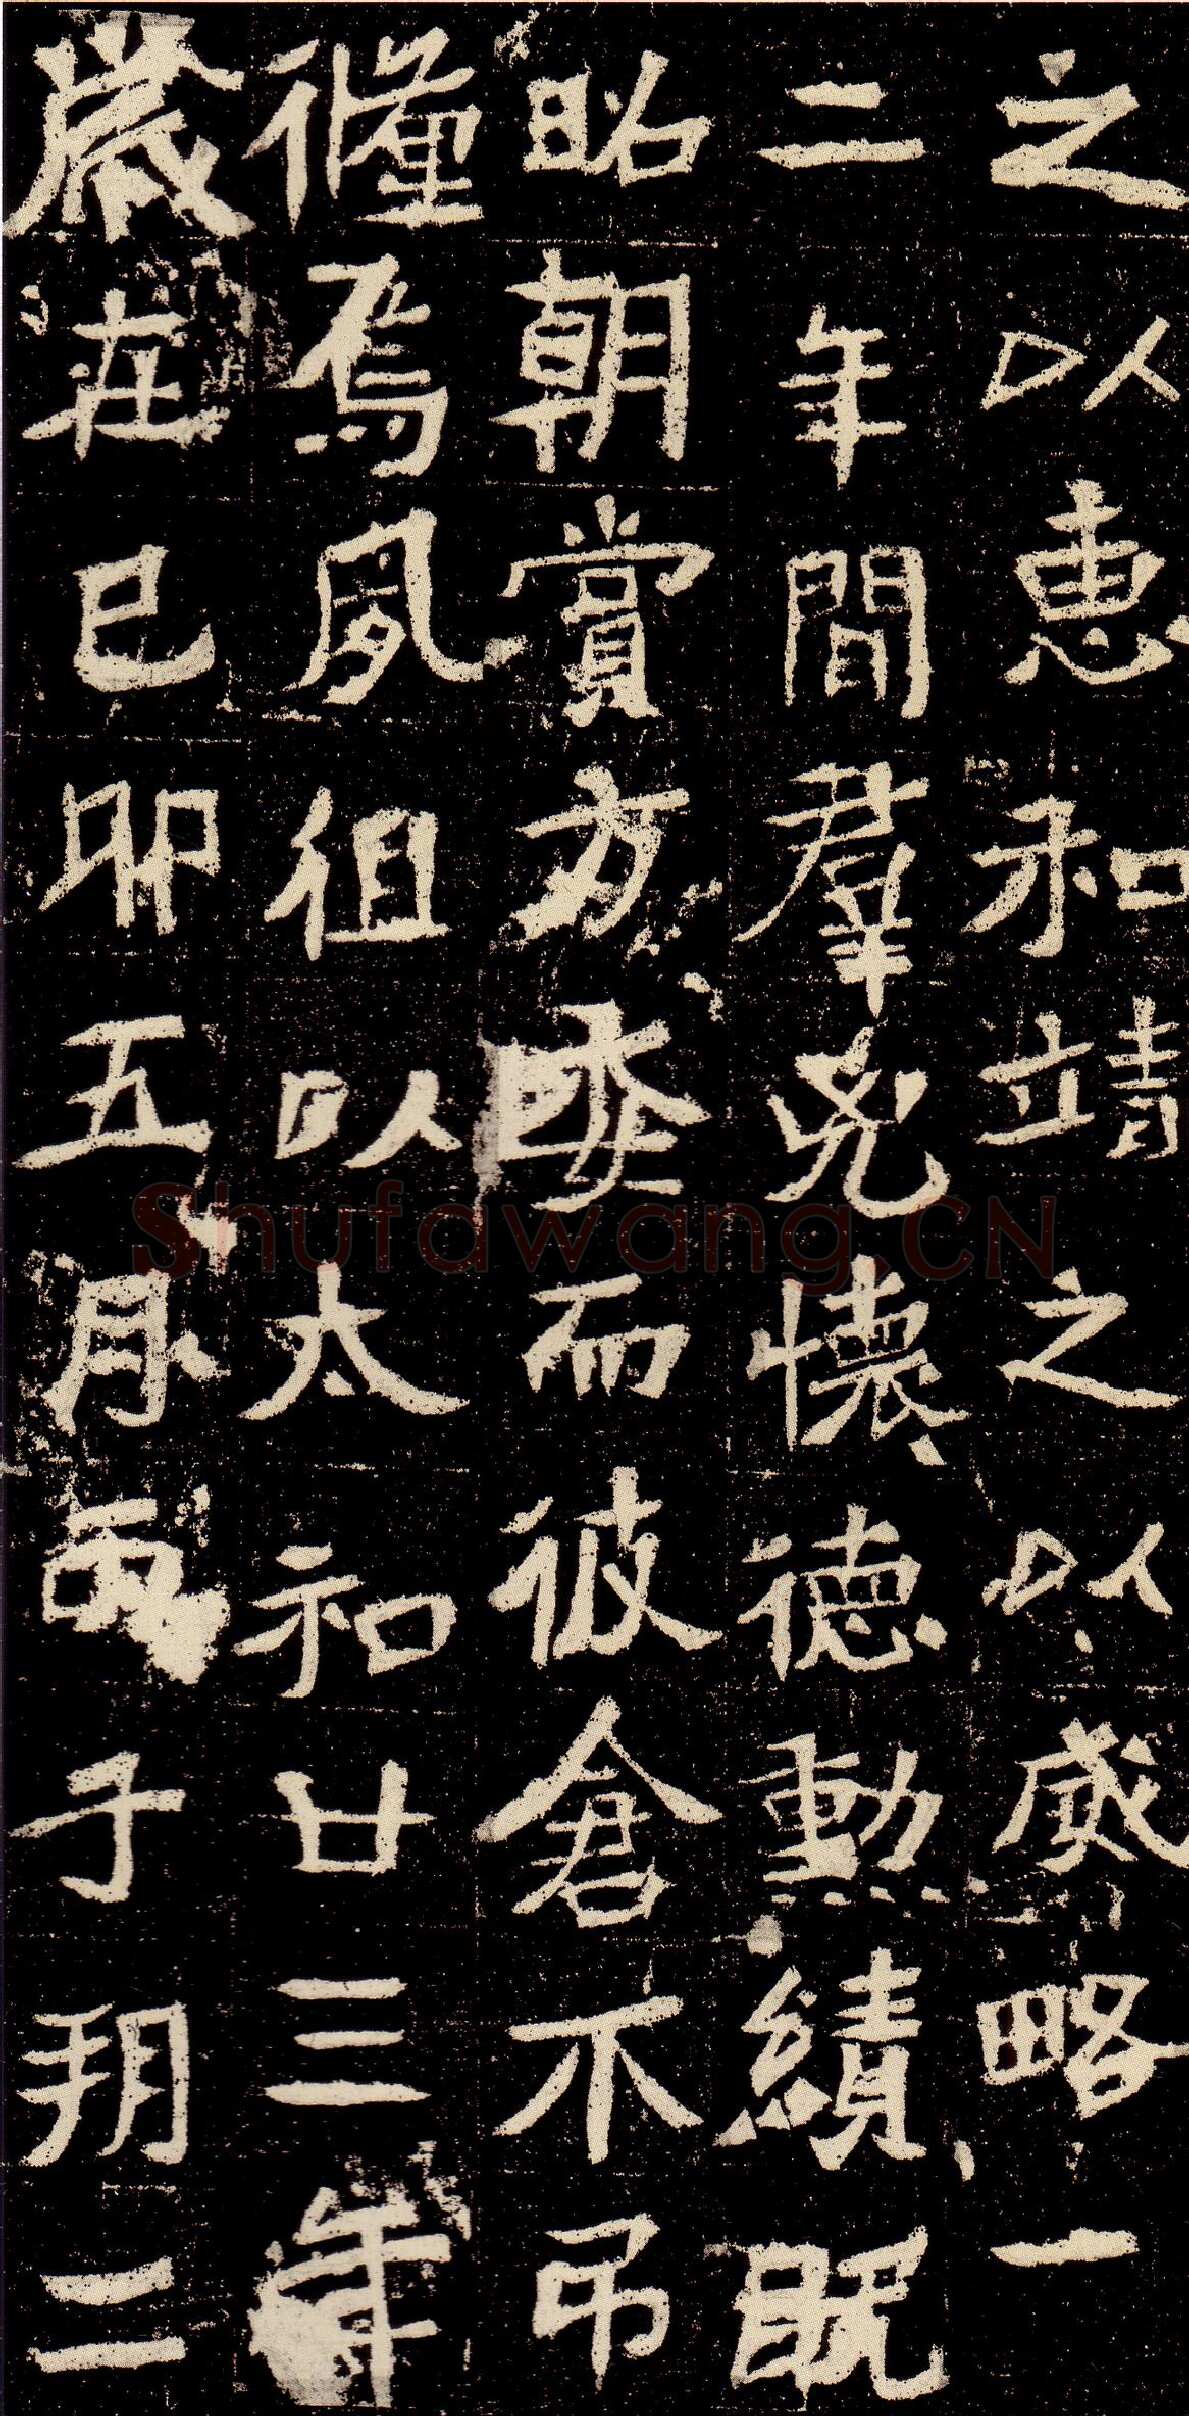 之以惠和靖之以威略一
二年間羣兇懷德勳績既
昭朝賞方委而彼倉不吊
焉夙徂以太和廿三年
歲在己卯五月丙子朔二
Shufawang.CN